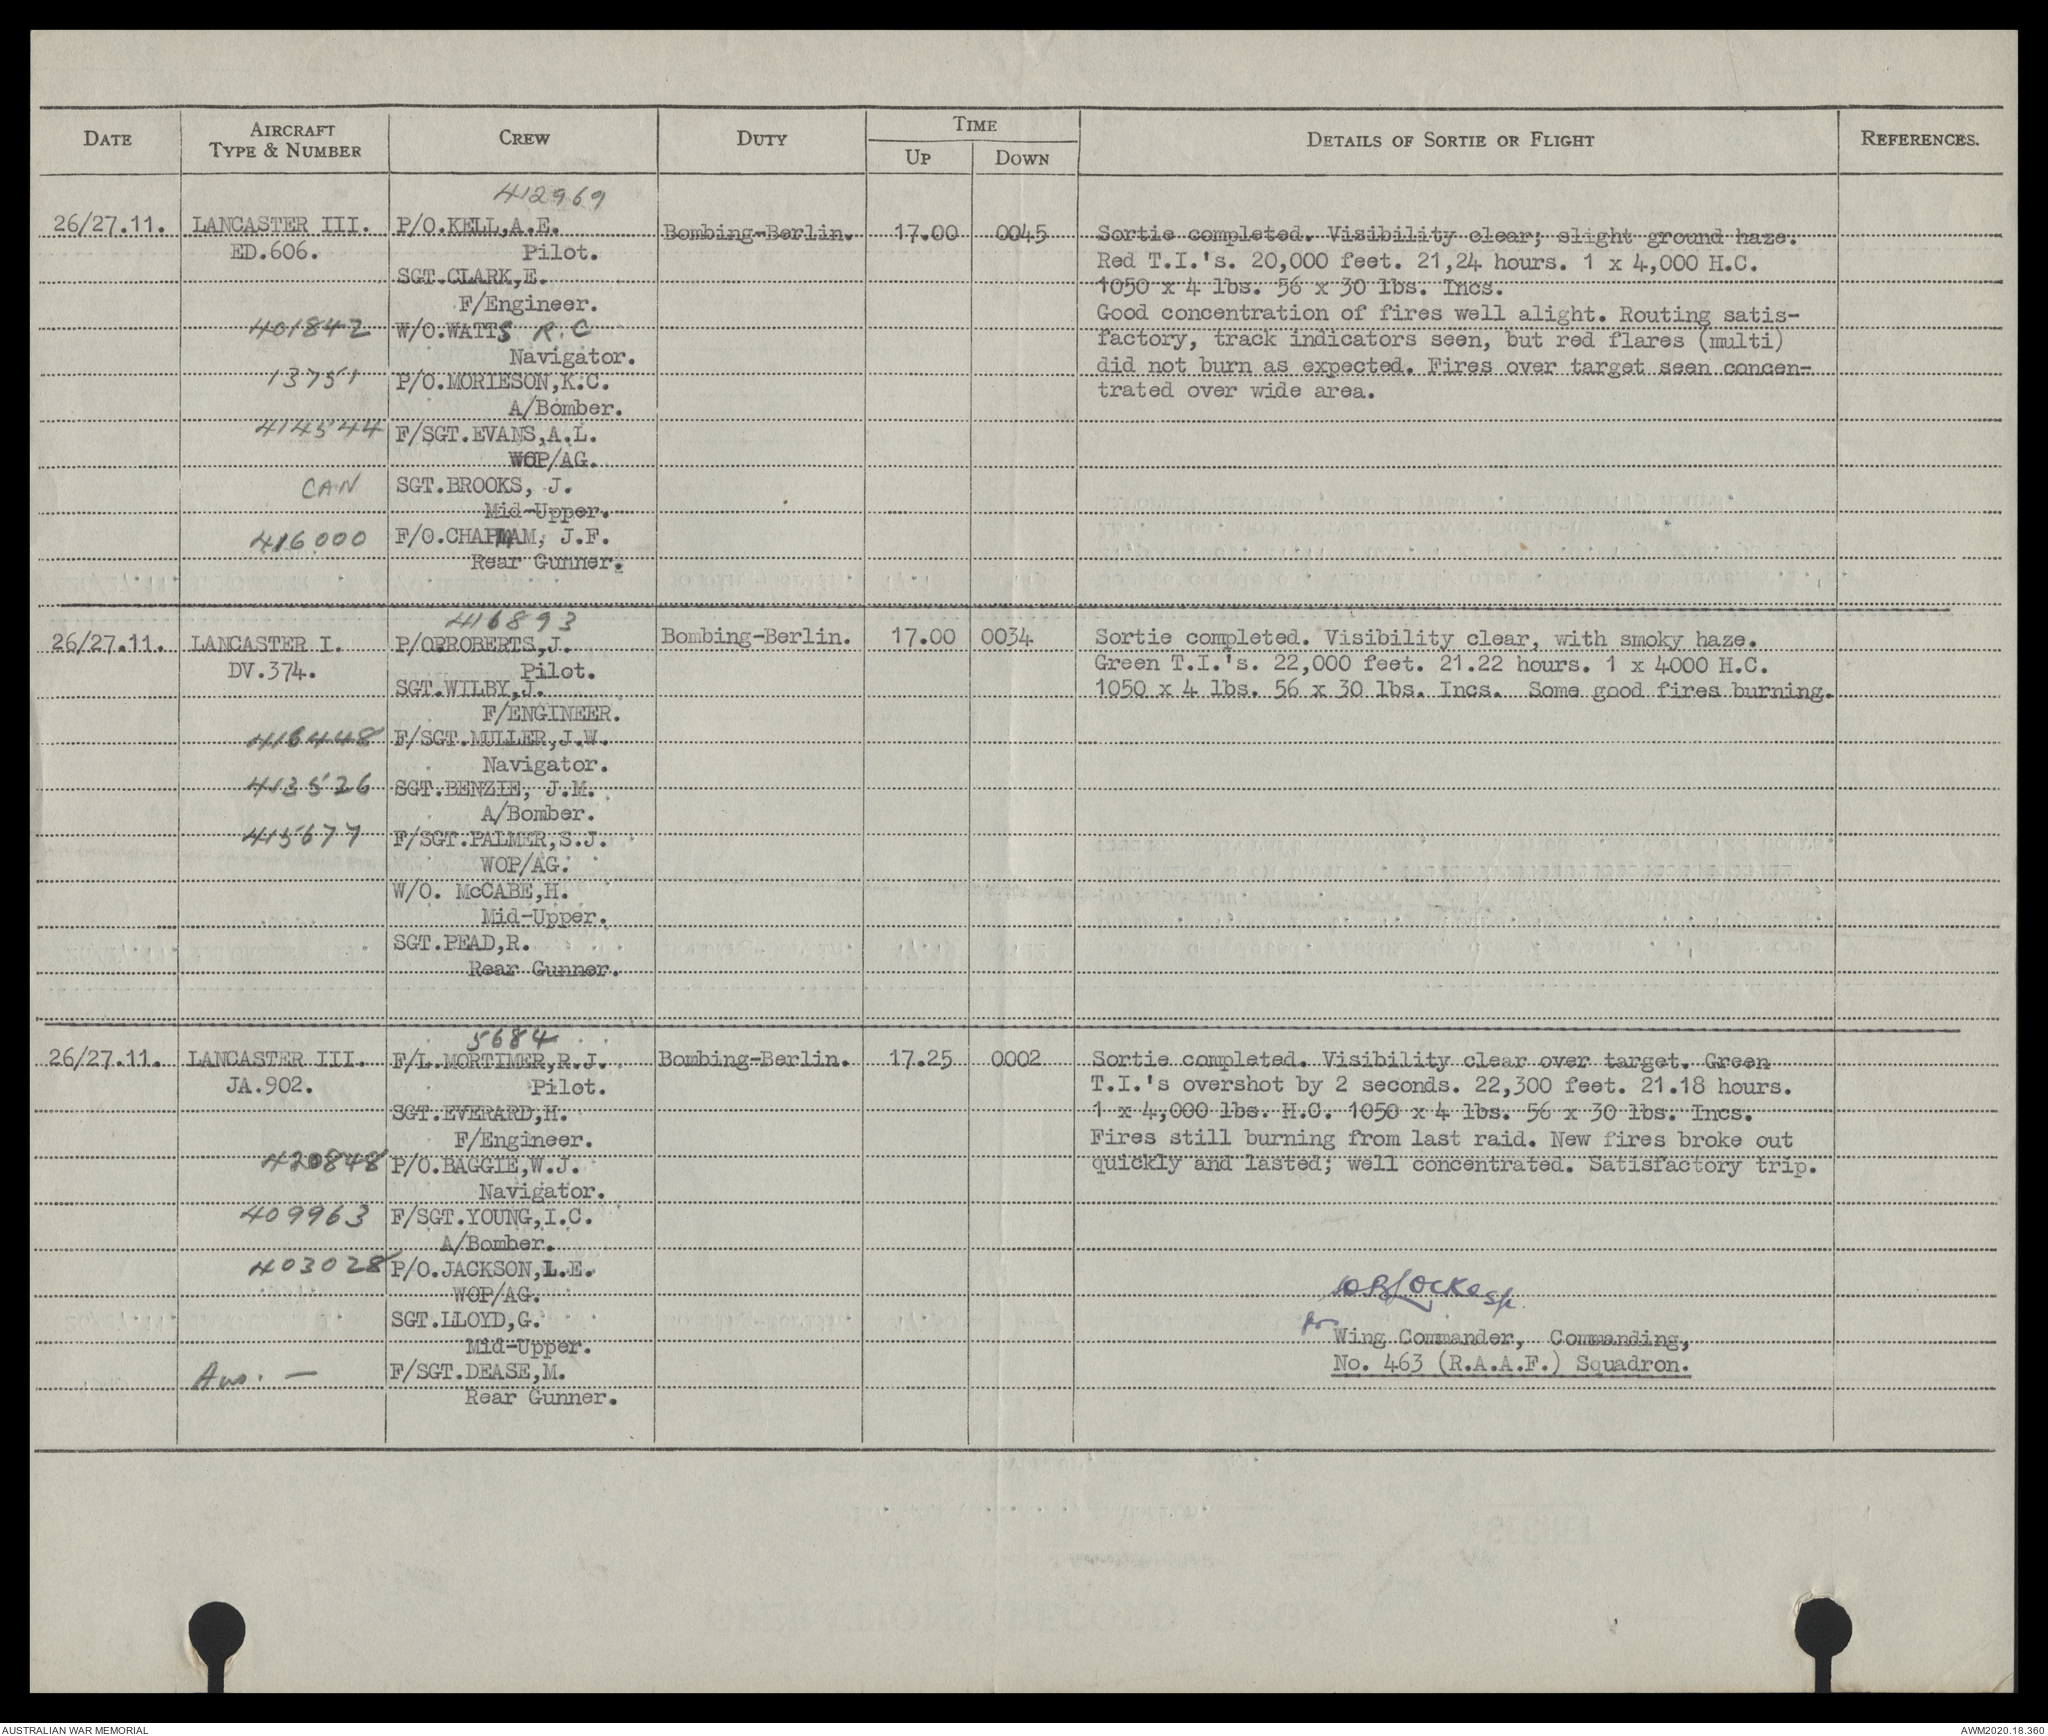 DATE AIRCRAFT TYPE & NUMBER CREW DUTY TIME UP DOWN DETAILS OF SORTIE OR FLIGHT REFERENCES.
412969
26/27.11. LANCASTER III. P/O.KELL,A.E. Bombing-Berlin. 17.00 0045 Sortie completed. Visibility clear; slight ground haze.
ED.606. Pilot. Red T.I.'s. 20,000 feet. 21,24 hours. 1 x 4,000 H.C.
SGT.CLARK,E. 1050 x 4 lbs. 56 x 30 lbs. Incs.
F/Engineer. Good concentration of fires well alight. Routing satis-
401842 W/O.WATTS R.C factory, track indicators seen, but red flares (multi)
Navigator. did not burn as expected. Fires over target seen concen-
13751 P/O.MORIESON,K.C. trated over wide area.
A/Bomber.
414544 F/SGT.EVANS,A.L.
WOP/AG.
CAN SGT.BROOKS, J.
Mid-Upper.
416000 F/O.CHAPMAM, J.F.
Rear Gunner.
416893
26/27.11. LANCASTER I. P/O.ROBERTS,J. Bombing-Berlin. 17.00 0034 Sortie completed. Visibility clear, with smoky haze.
DV.374. Pilot. Green T.I.'s. 22,000 feet. 21.22 hours. 1 x 4000 H.C.
SGT.WILBY,J. 1050 x 4 lbs. 56 x 30 lbs. Incs. Some good fires burning.
F/ENGINEER.
416448 F/SGT.MULLER,J.W.
Navigator.
413526 SGT.BENZIE, J.M.
A/Bomber.
415677 F/SGT.PALMER,S.J.
WOP/AG.
W/O. McCABE,H.
Mid-Upper.
SGT.PEAD,R.
Rear Gunner.
5684
26/27.11. LANCASTER III. F/L.MORTIMER,R.J. Bombing-Berlin. 17.25 0002 Sortie completed. Visibility clear over target. Green
JA.902. Pilot. T.I.'s overshot by 2 seconds. 22,300 feet. 21.18 hours.
SGT.EVERARD,H. 1 x 4,000 lbs. H.C. 1050 x 4 lbs. 56 x 30 lbs. Incs.
F/Engineer. Fires still burning from last raid. New fires broke out
420848 P/O.BAGGIE,W.J. quickly and lasted; well concentrated. Satisfactory trip.
Navigator.
409963 F/SGT.YOUNG,I.C.
A/Bomber.
403028 P/O.JACKSON,L.E.
WOP/AG.
SGT.LLOYD,G.
for Wing Commander, Commanding,
Mid-Upper.
No. 463 (R.A.A.F.) Squadron.
Aus. - F/SGT.DEASE,M.
Rear Gunner.
AUSTRALIAN WAR MEMORIAL AWM2020.18.360